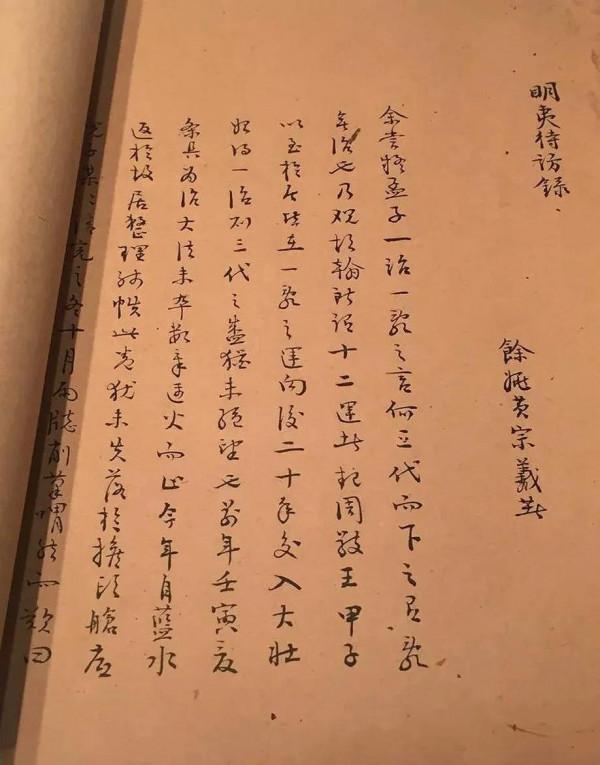 明夷待訪錄
餘姚黃宗羲著
余嘗疑孟子一治一亂之言何三代而下之有亂
無治也乃觀胡翰所謂十二運者起周敬王甲子
以至於今皆在一亂之運向後二十年交入大壯
始得一治則三代之盛猶未絕望也前年壬寅夏
條具為治大法未卒數章遇火而止今年自藍水
返於故居整理殘帙此卷猶未失落於擔頭艙底
兒子某々請完之冬十月雨牕削筆喟然而歎曰